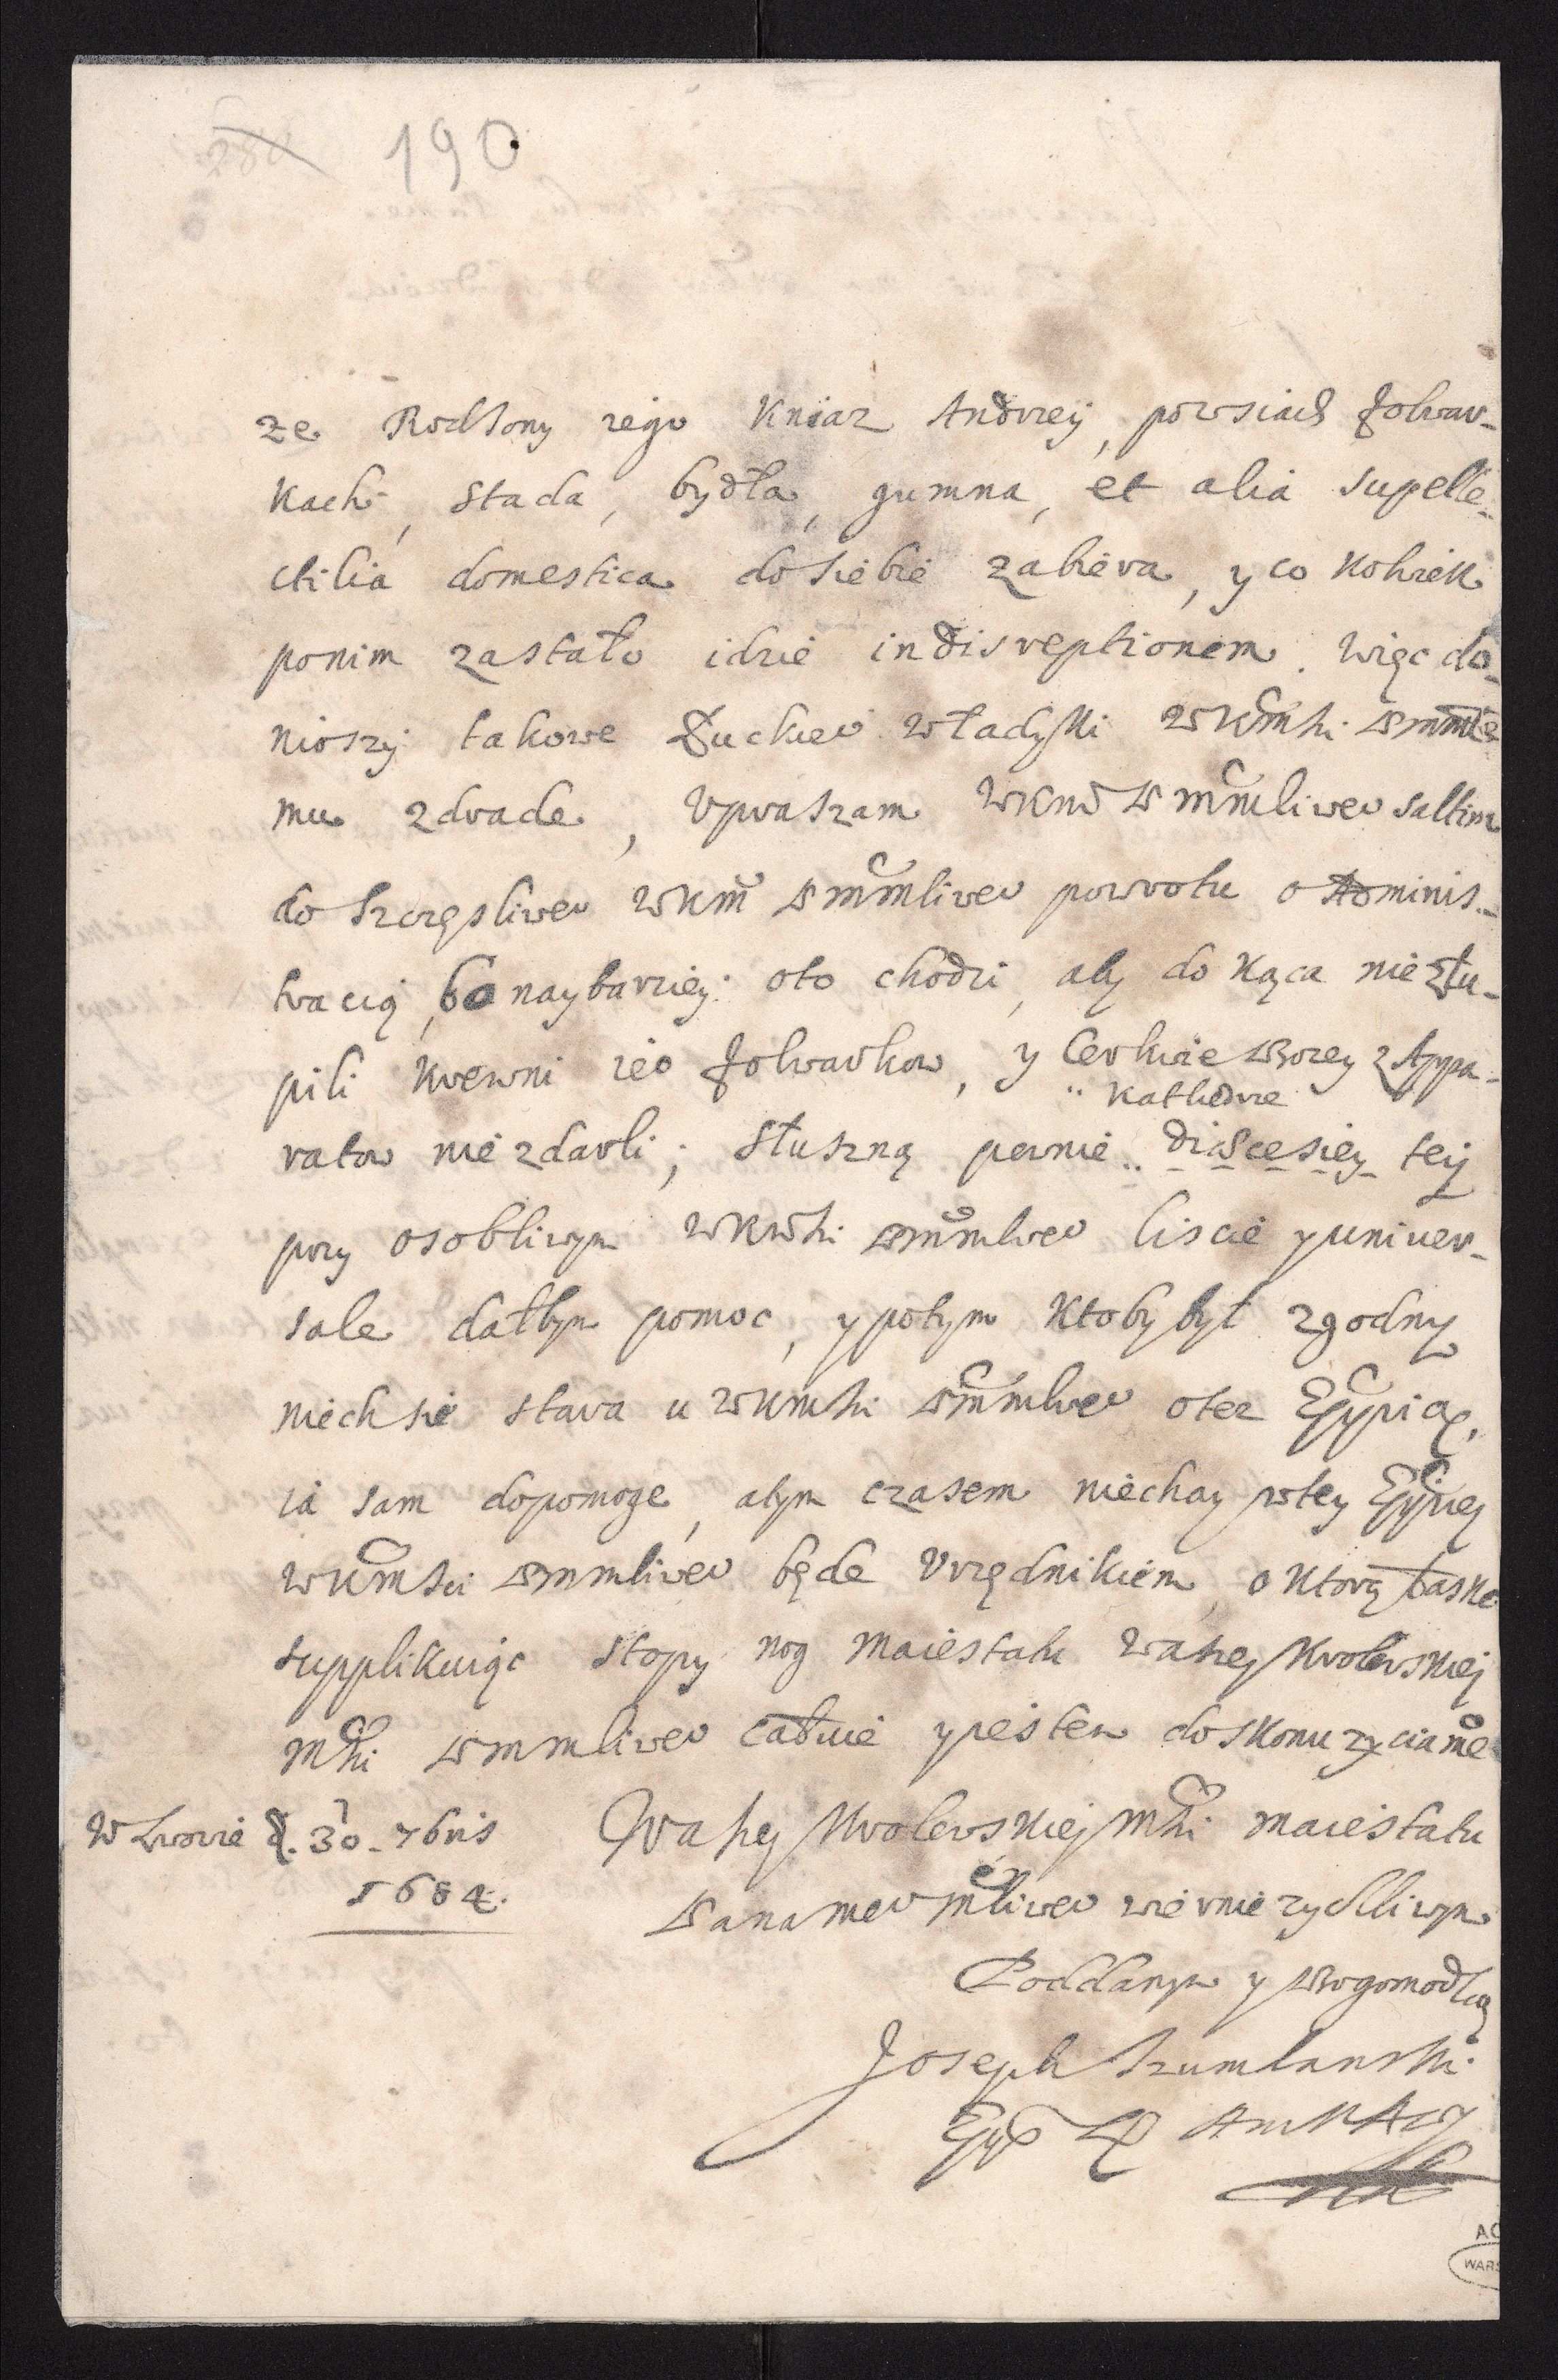 280 190
ze Rodzony iego Kniaz Andrzey, po wsiach Folwar-
kach, stada, bydła, gumna, et alia supelle-
ctilia domestica do siebie zabiera, y co kolwiek
ponim zastało idzie in disreptionem. Więc do-
niozszy takowe Łuckieo Władyki WKMsci
mu zdrade, Upraszam WKM Pmmliweo saltim
do szczęsliweo WKM Pmmliweo powrotu o Adminis-
tracią, bo naybarziey oto chodzi, aby do Kąca nie złu-
pili Krewni ieo Folwarkow, y Cerkwie Bozey z Appa-
Kathedrze
ratow nie zdarli; słuszną pewnie diaecesiey tey
przy osobliwym WKMsci Pmmlweo liscie y univer-
sale dałbym pomoc, y potym Ktoby był zgodny
niech sie stara u WKMsci Pmmlweo otez Eppią,
ia sam dopomoge, a tym czasem niechay w tey Eppiey
WKMsci Pmmliweo będe Urzędnikiem, o ktorą łaske
supplikuiąc stopy nog Maiestatu Waszey Krolewskiey
Msci Pmmliweo całuie y iestem do skonu zycia me
W Lwowie d. 30. 7bris Waszey Krolewskiey Msci Maiestatu
1684. Pana meo Mliweo wiernie zyczliwym
Poddanym y Bogomodlcą
Joseph Szumlanski
Epp L
AG
WARS